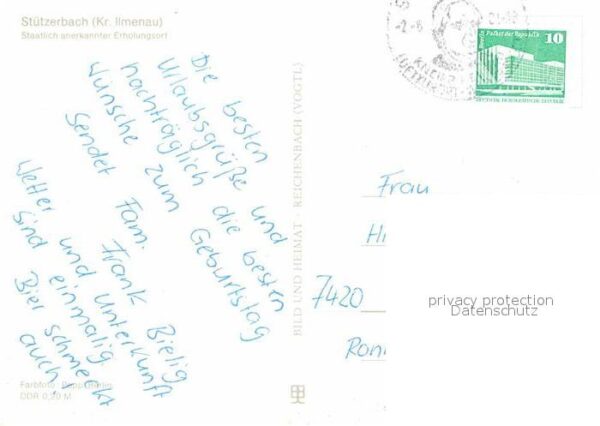 Stützerbach (Kr. Ilmenau)
Staatlich anerkannter Erholungsort
Die besten
Urlaubsgrüße und
nachträglich die besten
Wünsche zum Geburtstag
sendet Fam. Frank Bielig
Wetter und Unterkunft
sind einmalig.
Bier schmeckt
auch!
Farbfoto:
DDR 0,20 M
BILD UND HEIMAT - REICHENBACH (VOGTL)
Palast der Republik
10
DEUTSCHE DEMOKRATISCHE REPUBLIK
Frau
Hi
7420
Ronn
privacy protection
Datenschutz